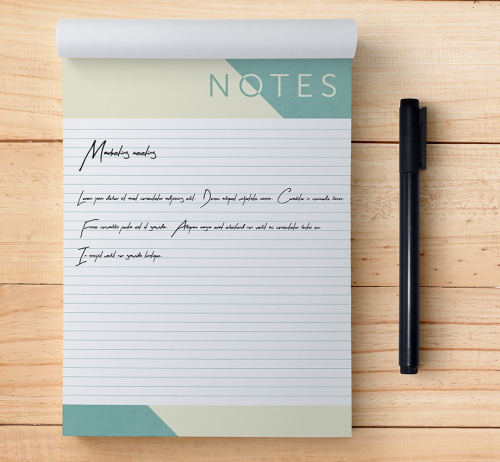 NOTES
Marketing meeting
Lorem ipsum dolor sit amet consectetur adipiscing elit. Donec aliquet vulputate Curabitur in convallis
Fusce convallis justo est id gravida. Aliquam erat eleifend non velit ac consectetur
In suscipit velit non gravida tristique.